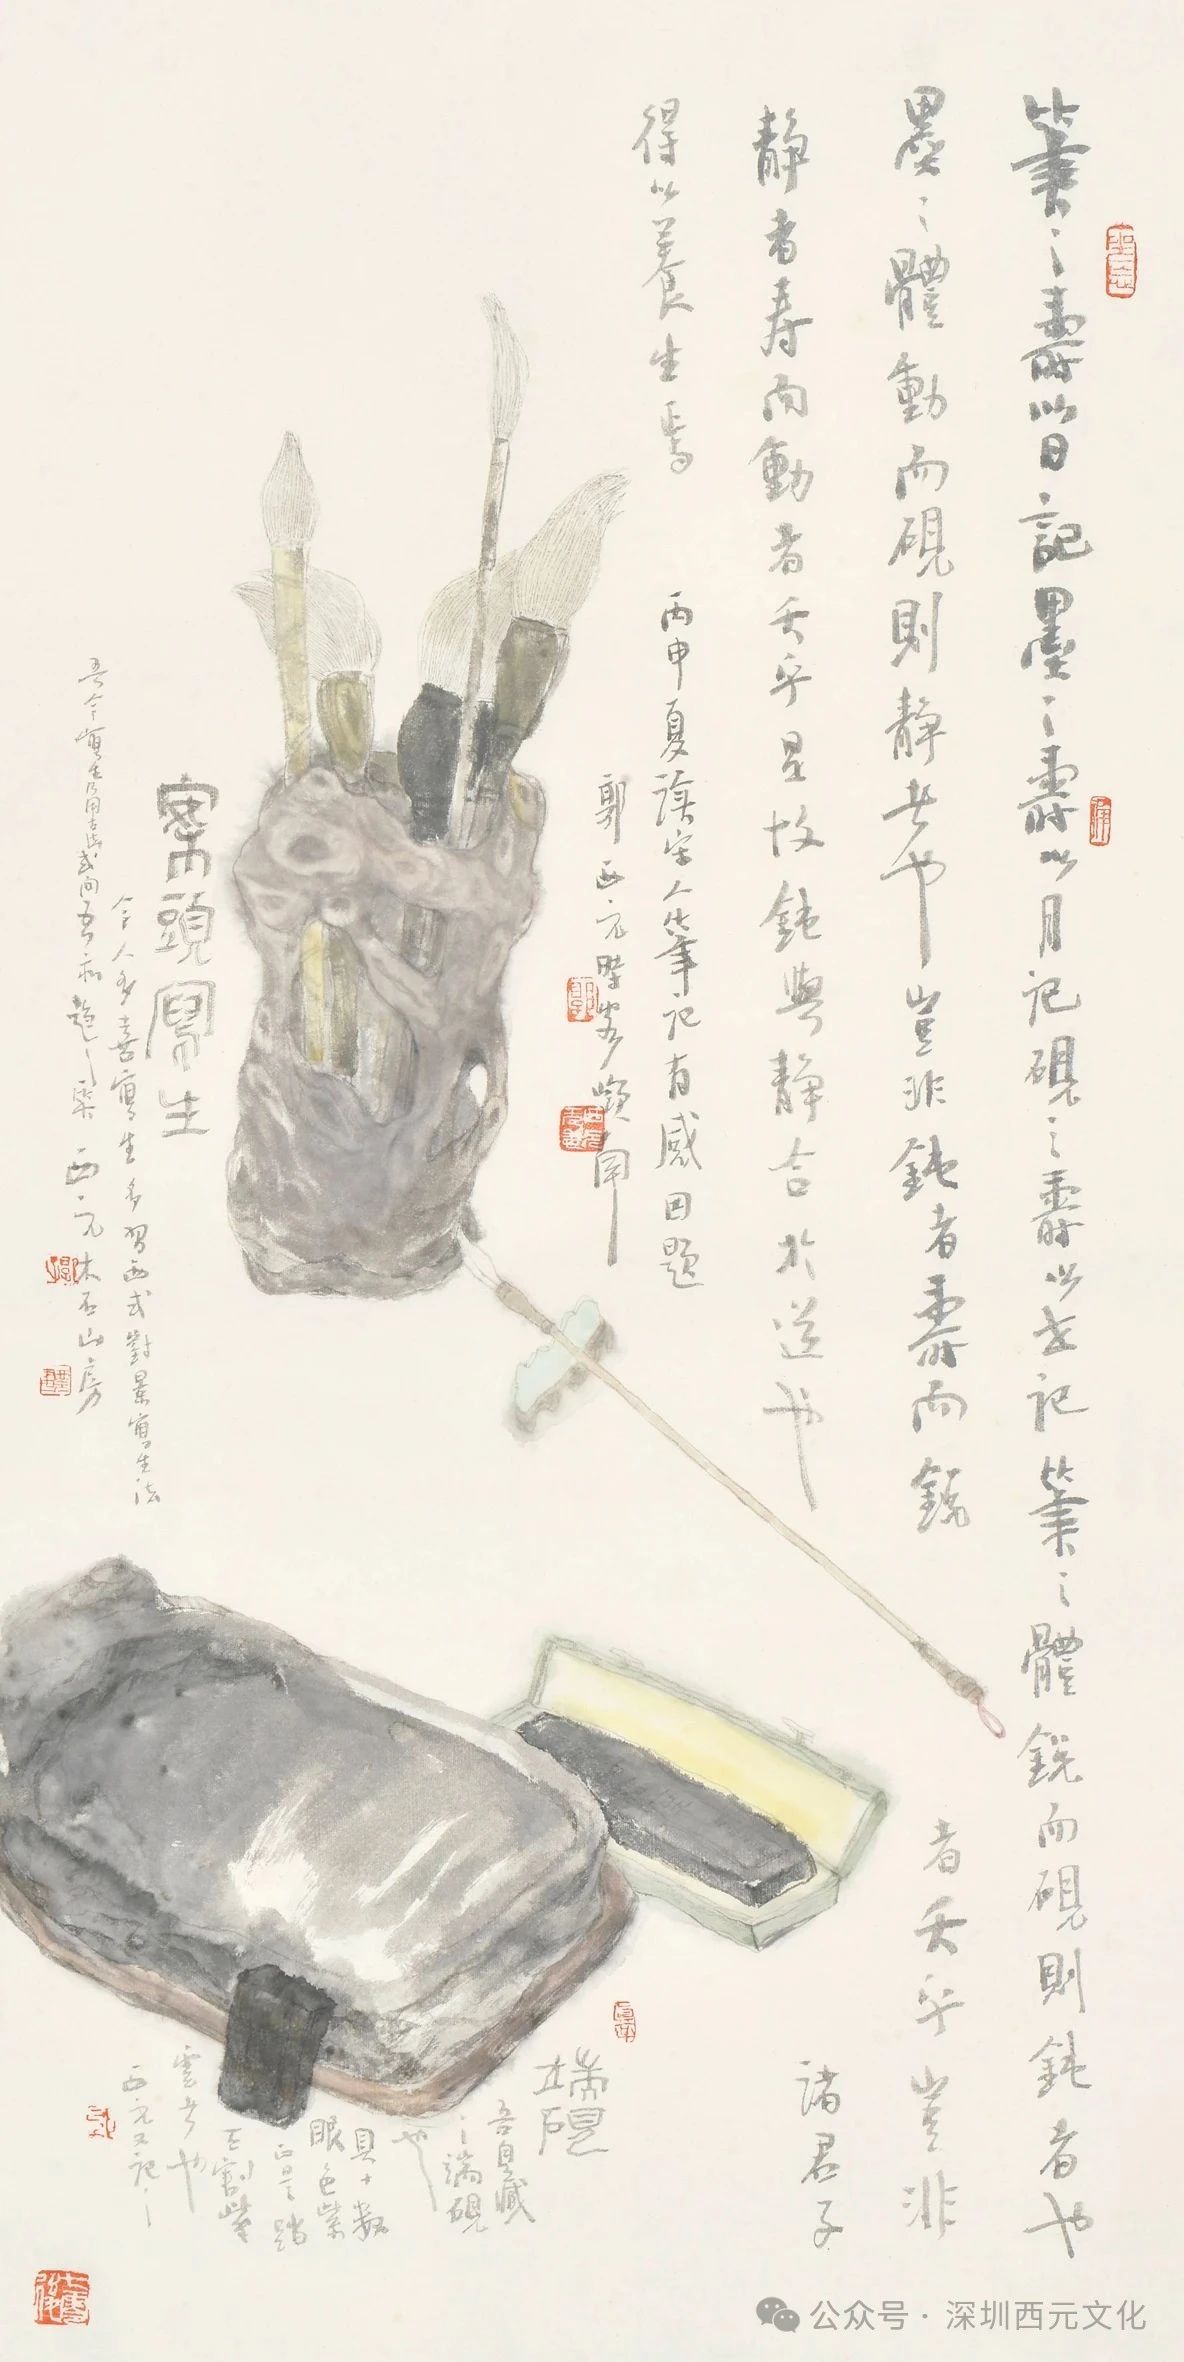 筆之壽以日記墨之壽以月記硯之壽以世記筆之體銳而硯則鈍者也
墨之體動而硯則静者也豈非鈍者壽而銳者夭乎豈非
静者寿而動者夭乎是故鈍與静合於道也諸君子
得以養生焉
丙申夏讀宋人筆記有感因題
郭西元時客
案頭寫生
今人多喜寫生多習西式對景寫生法
吾今寫生乃用古法或問吾西元木石山房
端硯
吾自藏
之端硯
也
具十數
眼色紫
正是踏
天割紫
雲者也
西元又記之
公众号·深圳西元文化